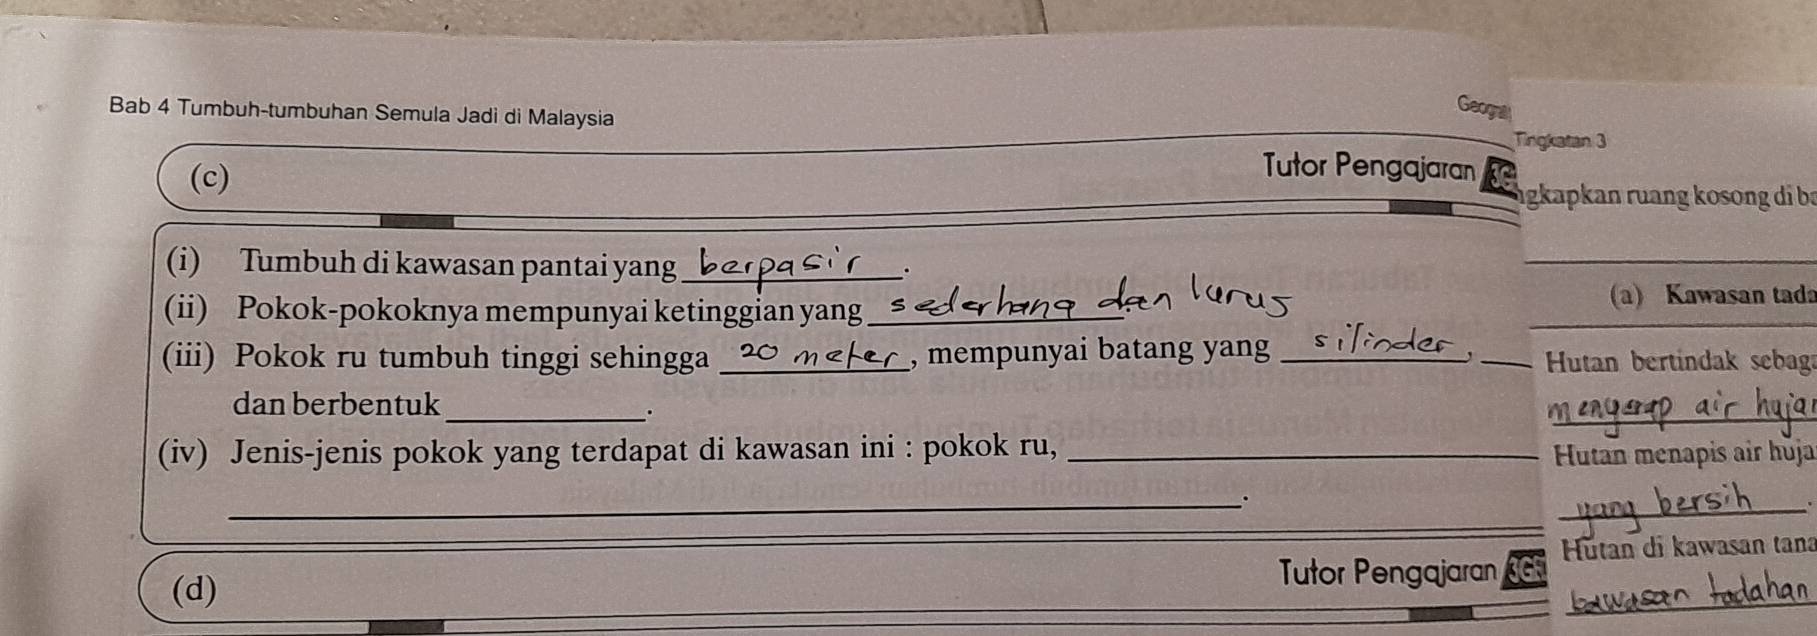 Bab 4 Tumbuh-tumbuhan Semula Jadi di Malaysia
(c)
Tutor Pengajaran
(i) Tumbuh di kawasan pantai yang berpasir.
(ii) Pokok-pokoknya mempunyai ketinggian yang sederhana dan lurus
(iii) Pokok ru tumbuh tinggi sehingga 20 meter, mempunyai batang yang silinder,
dan berbentuk ____.
(iv) Jenis-jenis pokok yang terdapat di kawasan ini : pokok ru, ____
____.
(d)
Tutor Pengajaran
Tingkatan 3
ruang kosong di
(a) Kawasan
Hutan bertindak
menyerap air
Hutan menapis air
yang bersih.
Hutan di kawasan
tadahan